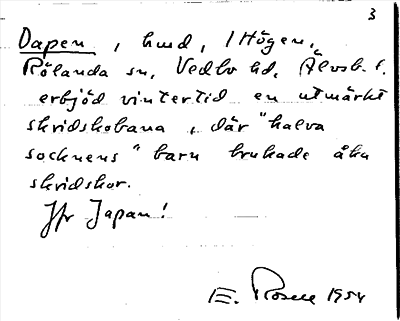 3
Dapen, hmd, i Högen,
Rölanda sn, Vedbo hd, Älvsb. l.
erbjöd vintertid en utmärkt
skridskobana, där "halva
socknens" barn brukade åka
skridskor.
Jfr Japan!
E. Rosell 1954